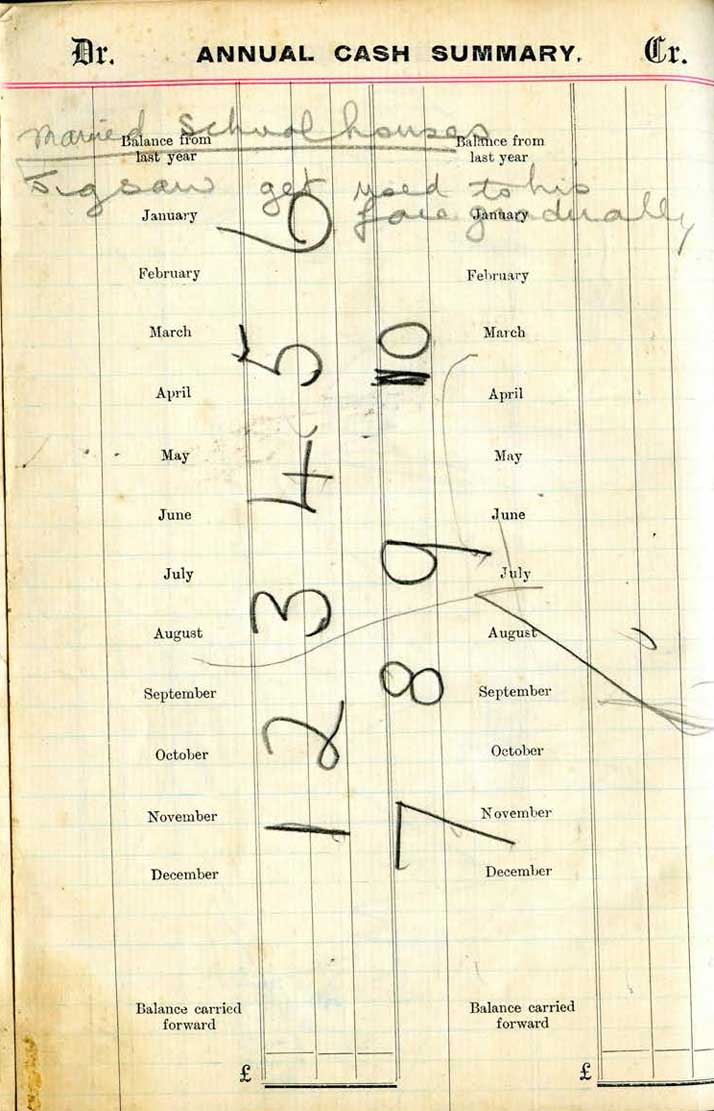 Dr. ANNUAL CASH SUMMARY. Cr.
Married Schoolhouses
Balance from last year Balance from last year
Jigsaw get used to his
face gradually
January January
February February
March March
April April
May May
June June
July July
August August
September September
October October
November November
December December
Balance carried forward Balance carried forward
£ £
1 2 3 4 5 6
7 8 9 10